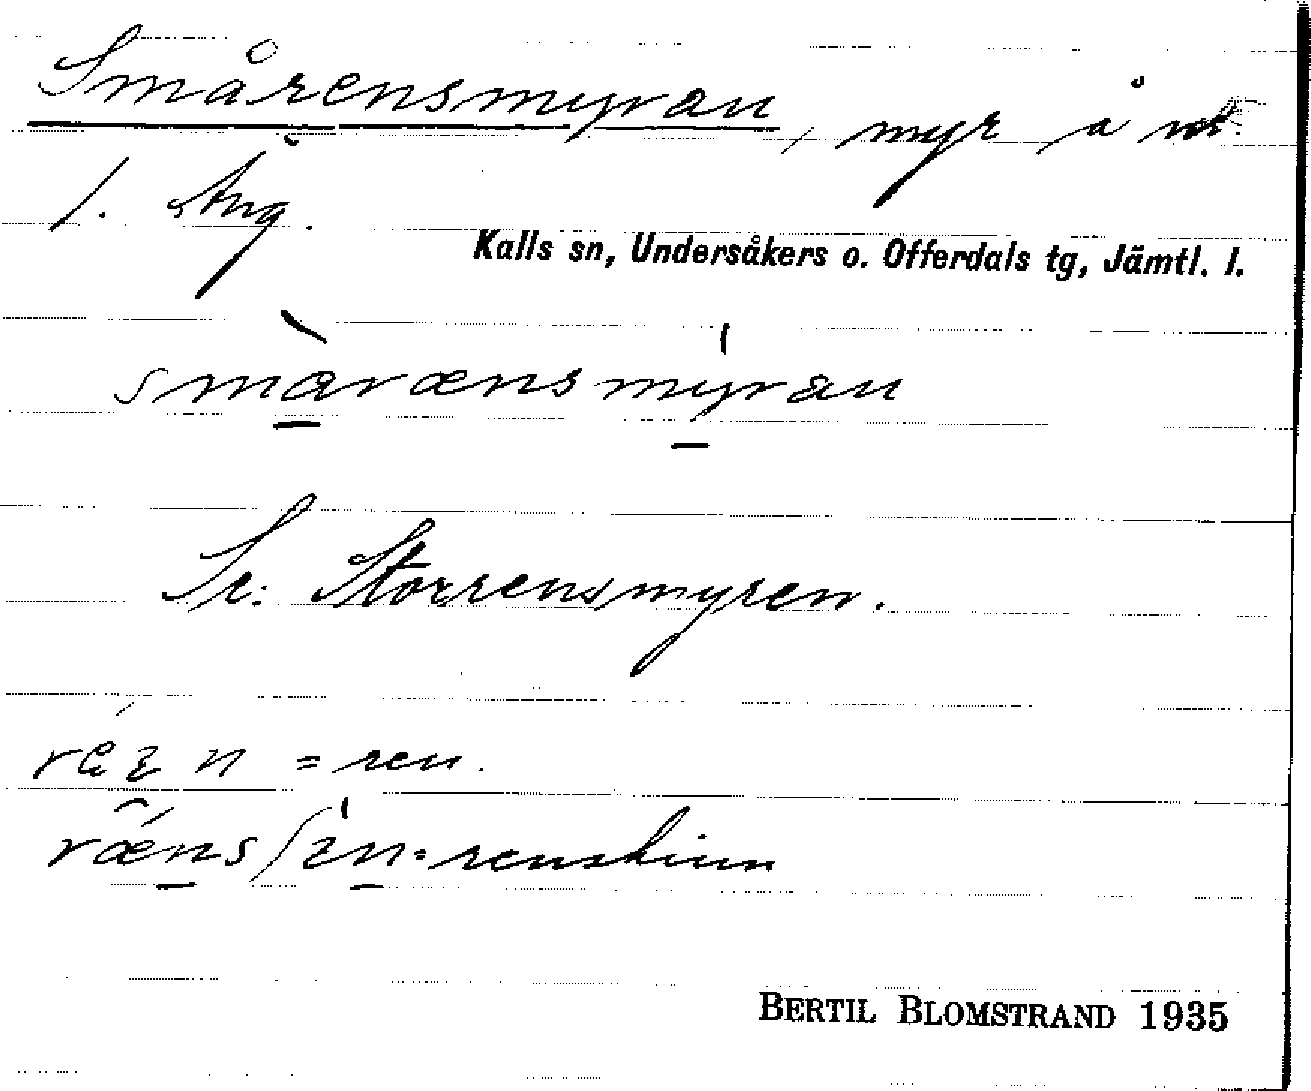 Smårensmyran, myr å
1. Äng.
Kalls sn, Undersåkers o. Offerdals tg, Jämtl. l.
smaræns myran
Se: Storrensmyren.
= ren.
= renskinn
BERTIL BLOMSTRAND 1935